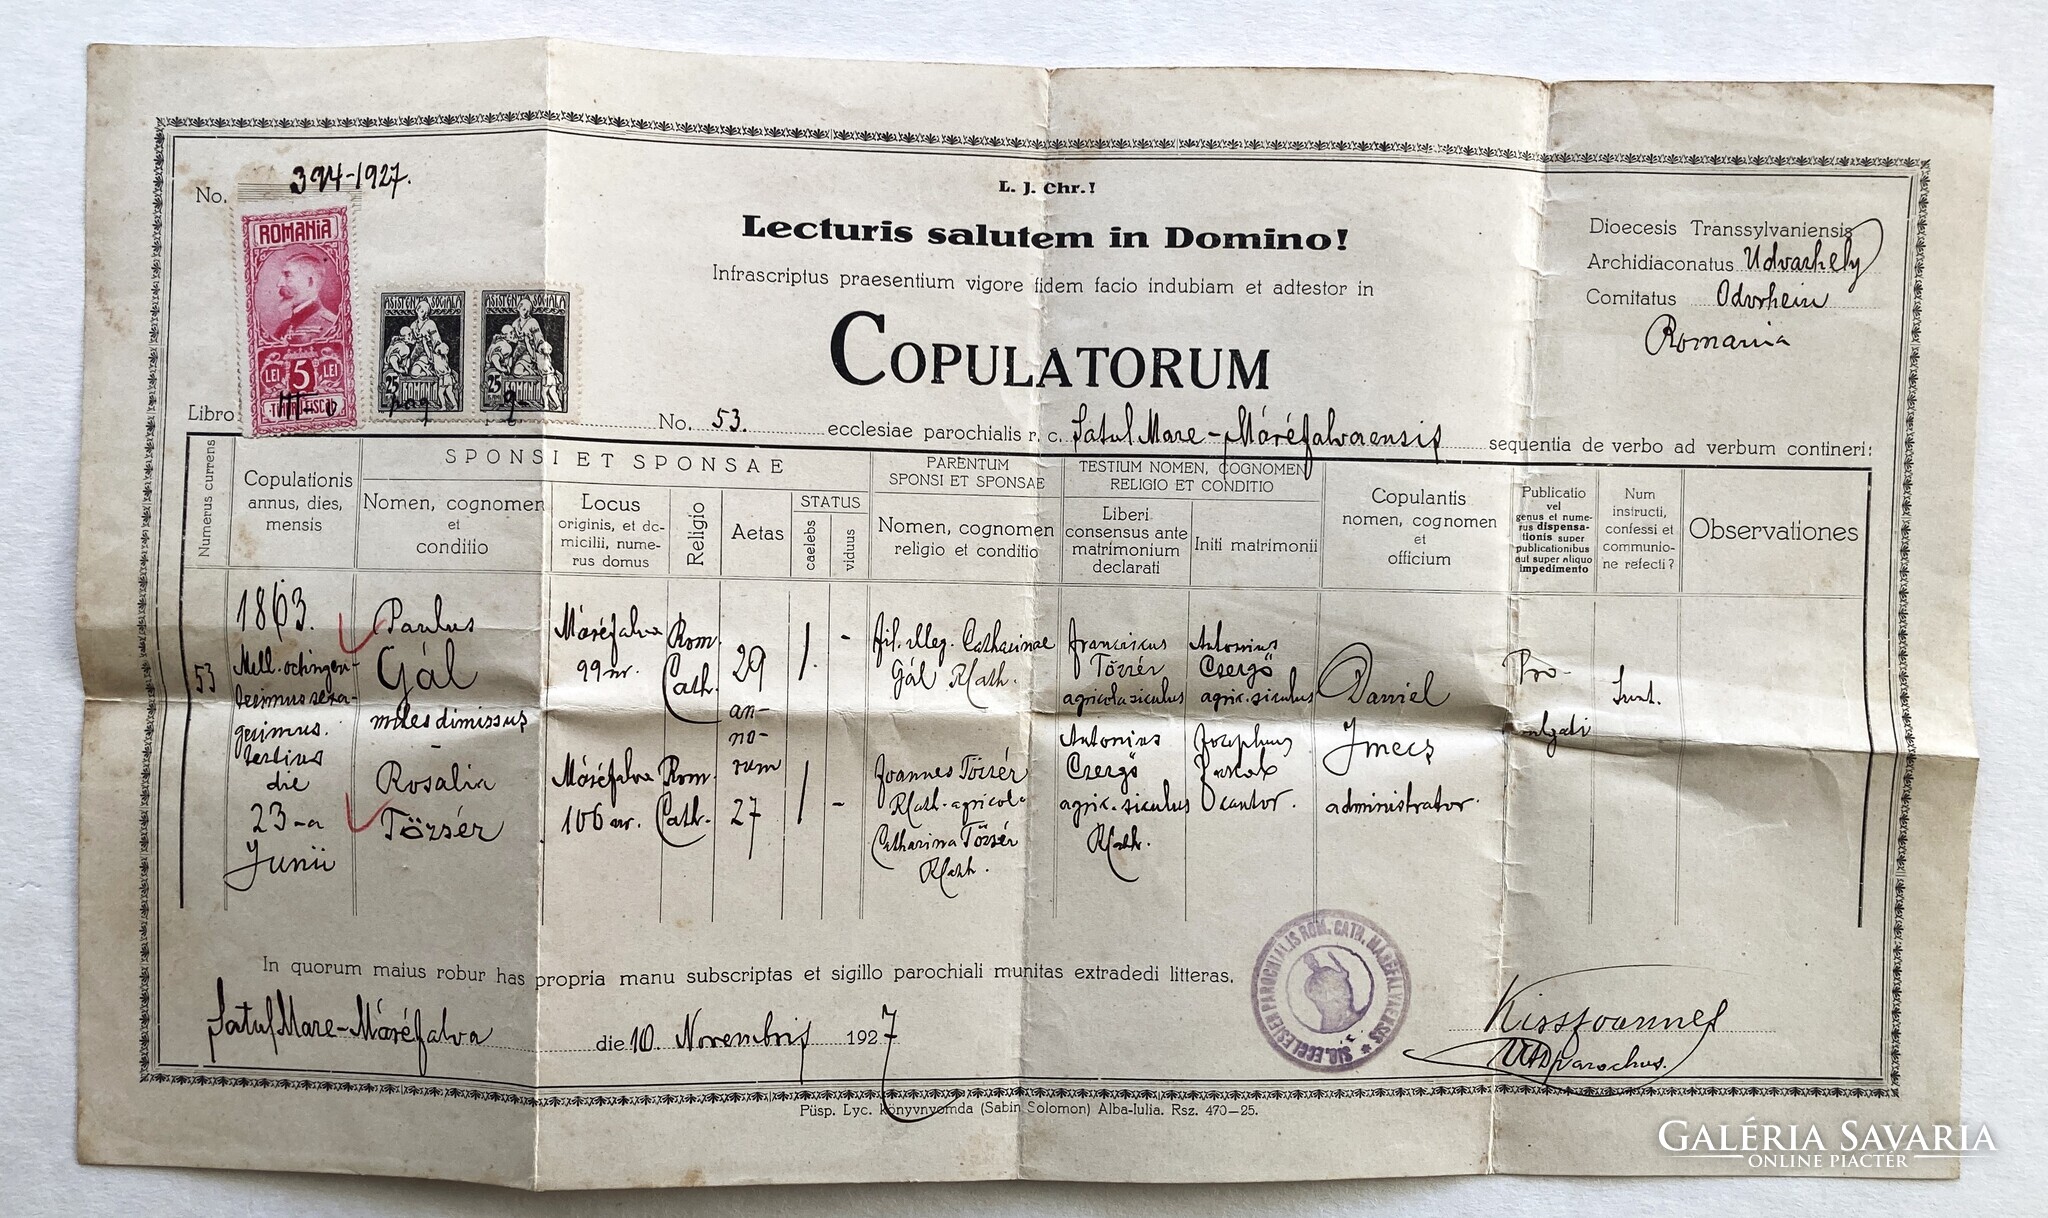 No. 394-1927.
L. J. Chr.!
Lecturis salutem in Domino!
Infrascriptus praesentium vigore fidem facio indubiam et adtestor in
COPULATORUM
Dioecesis Transsylvaniensis
Archidiaconatus Udvarhely
Comitatus Odorheiu
Romania
ROMANIA
LEI 5 LEI
TIMBRU FISCAL
ASISTENȚA SOCIALA
25 ROMANIA
ASISTENȚA SOCIALA
25 ROMANIA
Libro pag 9 No. 53. ecclesiae parochialis r. c. Satul Mare-Máréfalvaensis sequentia de verbo ad verbum contineri:
Numerus currens
Copulationis
annus, dies,
mensis
SPONSI ET SPONSAE
Nomen, cognomen
et
conditio
Locus
originis, et do-
micilii, nume-
rus domus
Religio
Aetas
STATUS
caelebs
viduus
PARENTUM
SPONSI ET SPONSAE
Nomen, cognomen
religio et conditio
TESTIUM NOMEN, COGNOMEN
RELIGIO ET CONDITIO
Liberi
consensus ante
matrimonium
declarati
Initi matrimonii
Copulantis
nomen, cognomen
et
officium
Publicatio
vel
genus et nume-
rus dispensa-
tionis super
publicationibus
aut super aliquo
impedimento
Num
instructi,
confessi et
communio-
ne refecti?
Observationes
53
1863.
Mill. octingen-
tesimus sexa-
gesimus.
tertius
die
23-a
Junii
Paulus
Gál
miles dimissus
-
Rosalia
Tőzsér
Máréfalva
99 nr.
Máréfalva
106 nr.
Rom.
Cath.
Rom.
Cath.
29
an-
no-
rum
27
1. -
1 -
fil. illeg. Catharinae
Gál RCath.
Joannes Tőzsér
RCath. agricola
Catharina Tőzsér
RCath.
Franciscus
Tőzsér
agricola siculus
Antonius
Csergő
agric. siculus
RCath.
Antonius
Csergő
agric. siculus
Josephus
cantor.
Daniel
Imecs
administrator
Pro-
mulgati
Sunt.
In quorum maius robur has propria manu subscriptas et sigillo parochiali munitas extradedi litteras.
Satul Mare-Máréfalva die 10. Novembris 1927
SIG. ECCLESIAE PAROCHIALIS ROM. CATH. MARÉFALVAENSIS
Kiss Joannes
parochus.
Püsp. Lyc. könyvnyomda (Sabin Solomon) Alba-Iulia. Rsz. 470—25.
GALÉRIA SAVARIA
ONLINE PIACTÉR